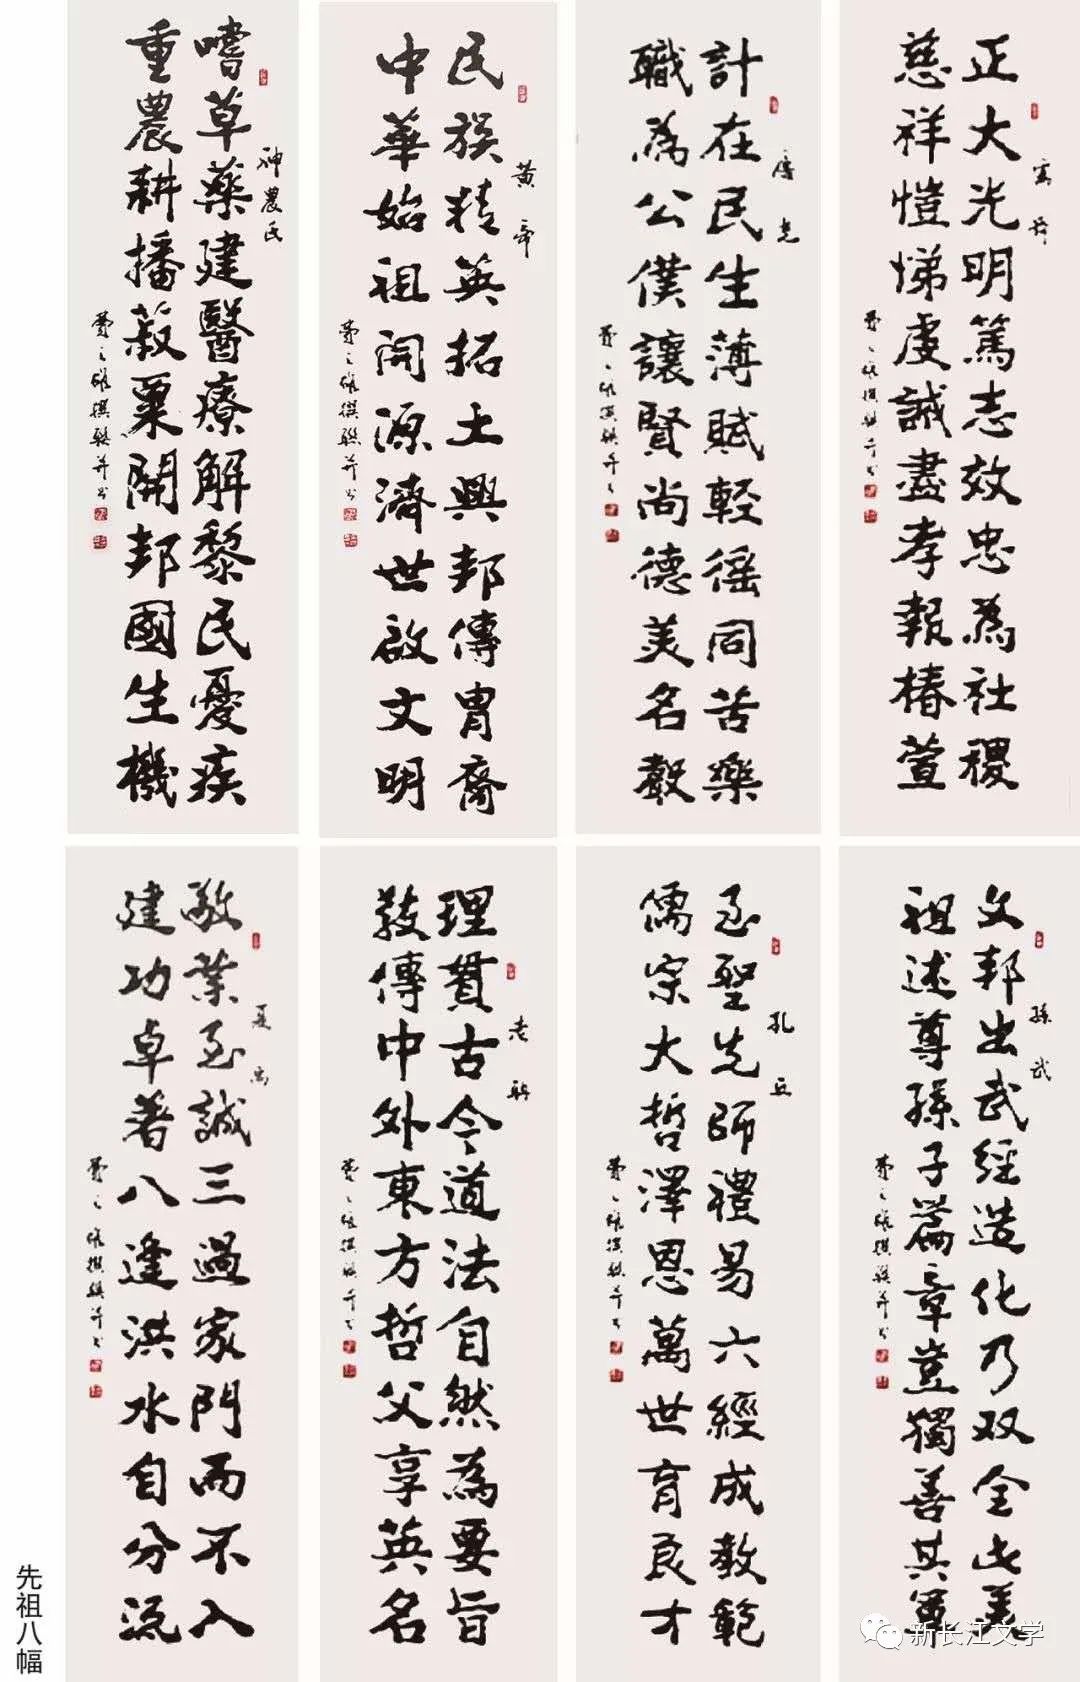 神農氏
嗜草藥建醫療解黎民憂疾
重農耕播菽粟開邦國生機
費之雄撰聯并书
黃帝
民族精英拓土興邦傳冑裔
中華始祖開源濟世啟文明
費之雄撰聯并书
唐堯
計在民生薄賦輕徭同苦樂
職為公僕讓賢尚德美名聲
費之雄撰聯并书
虞舜
正大光明篤志效忠為社稷
慈祥愷悌虔誠盡孝報椿萱
費之雄撰聯并书
夏禹
敬業至誠三過家門而不入
建功卓著八逢洪水自分流
費之雄撰聯并书
老聃
理貫古今道法自然為要旨
教傳中外東方哲父享英名
費之雄撰聯并书
孔丘
至聖先師禮易六經成教範
儒宗大哲澤恩萬世育良才
費之雄撰聯并书
孫武
文邦出武經造化乃双全此美
祖述尊孫子篇章豈獨善其軍
費之雄撰聯并书
先祖八幅
新长江文学